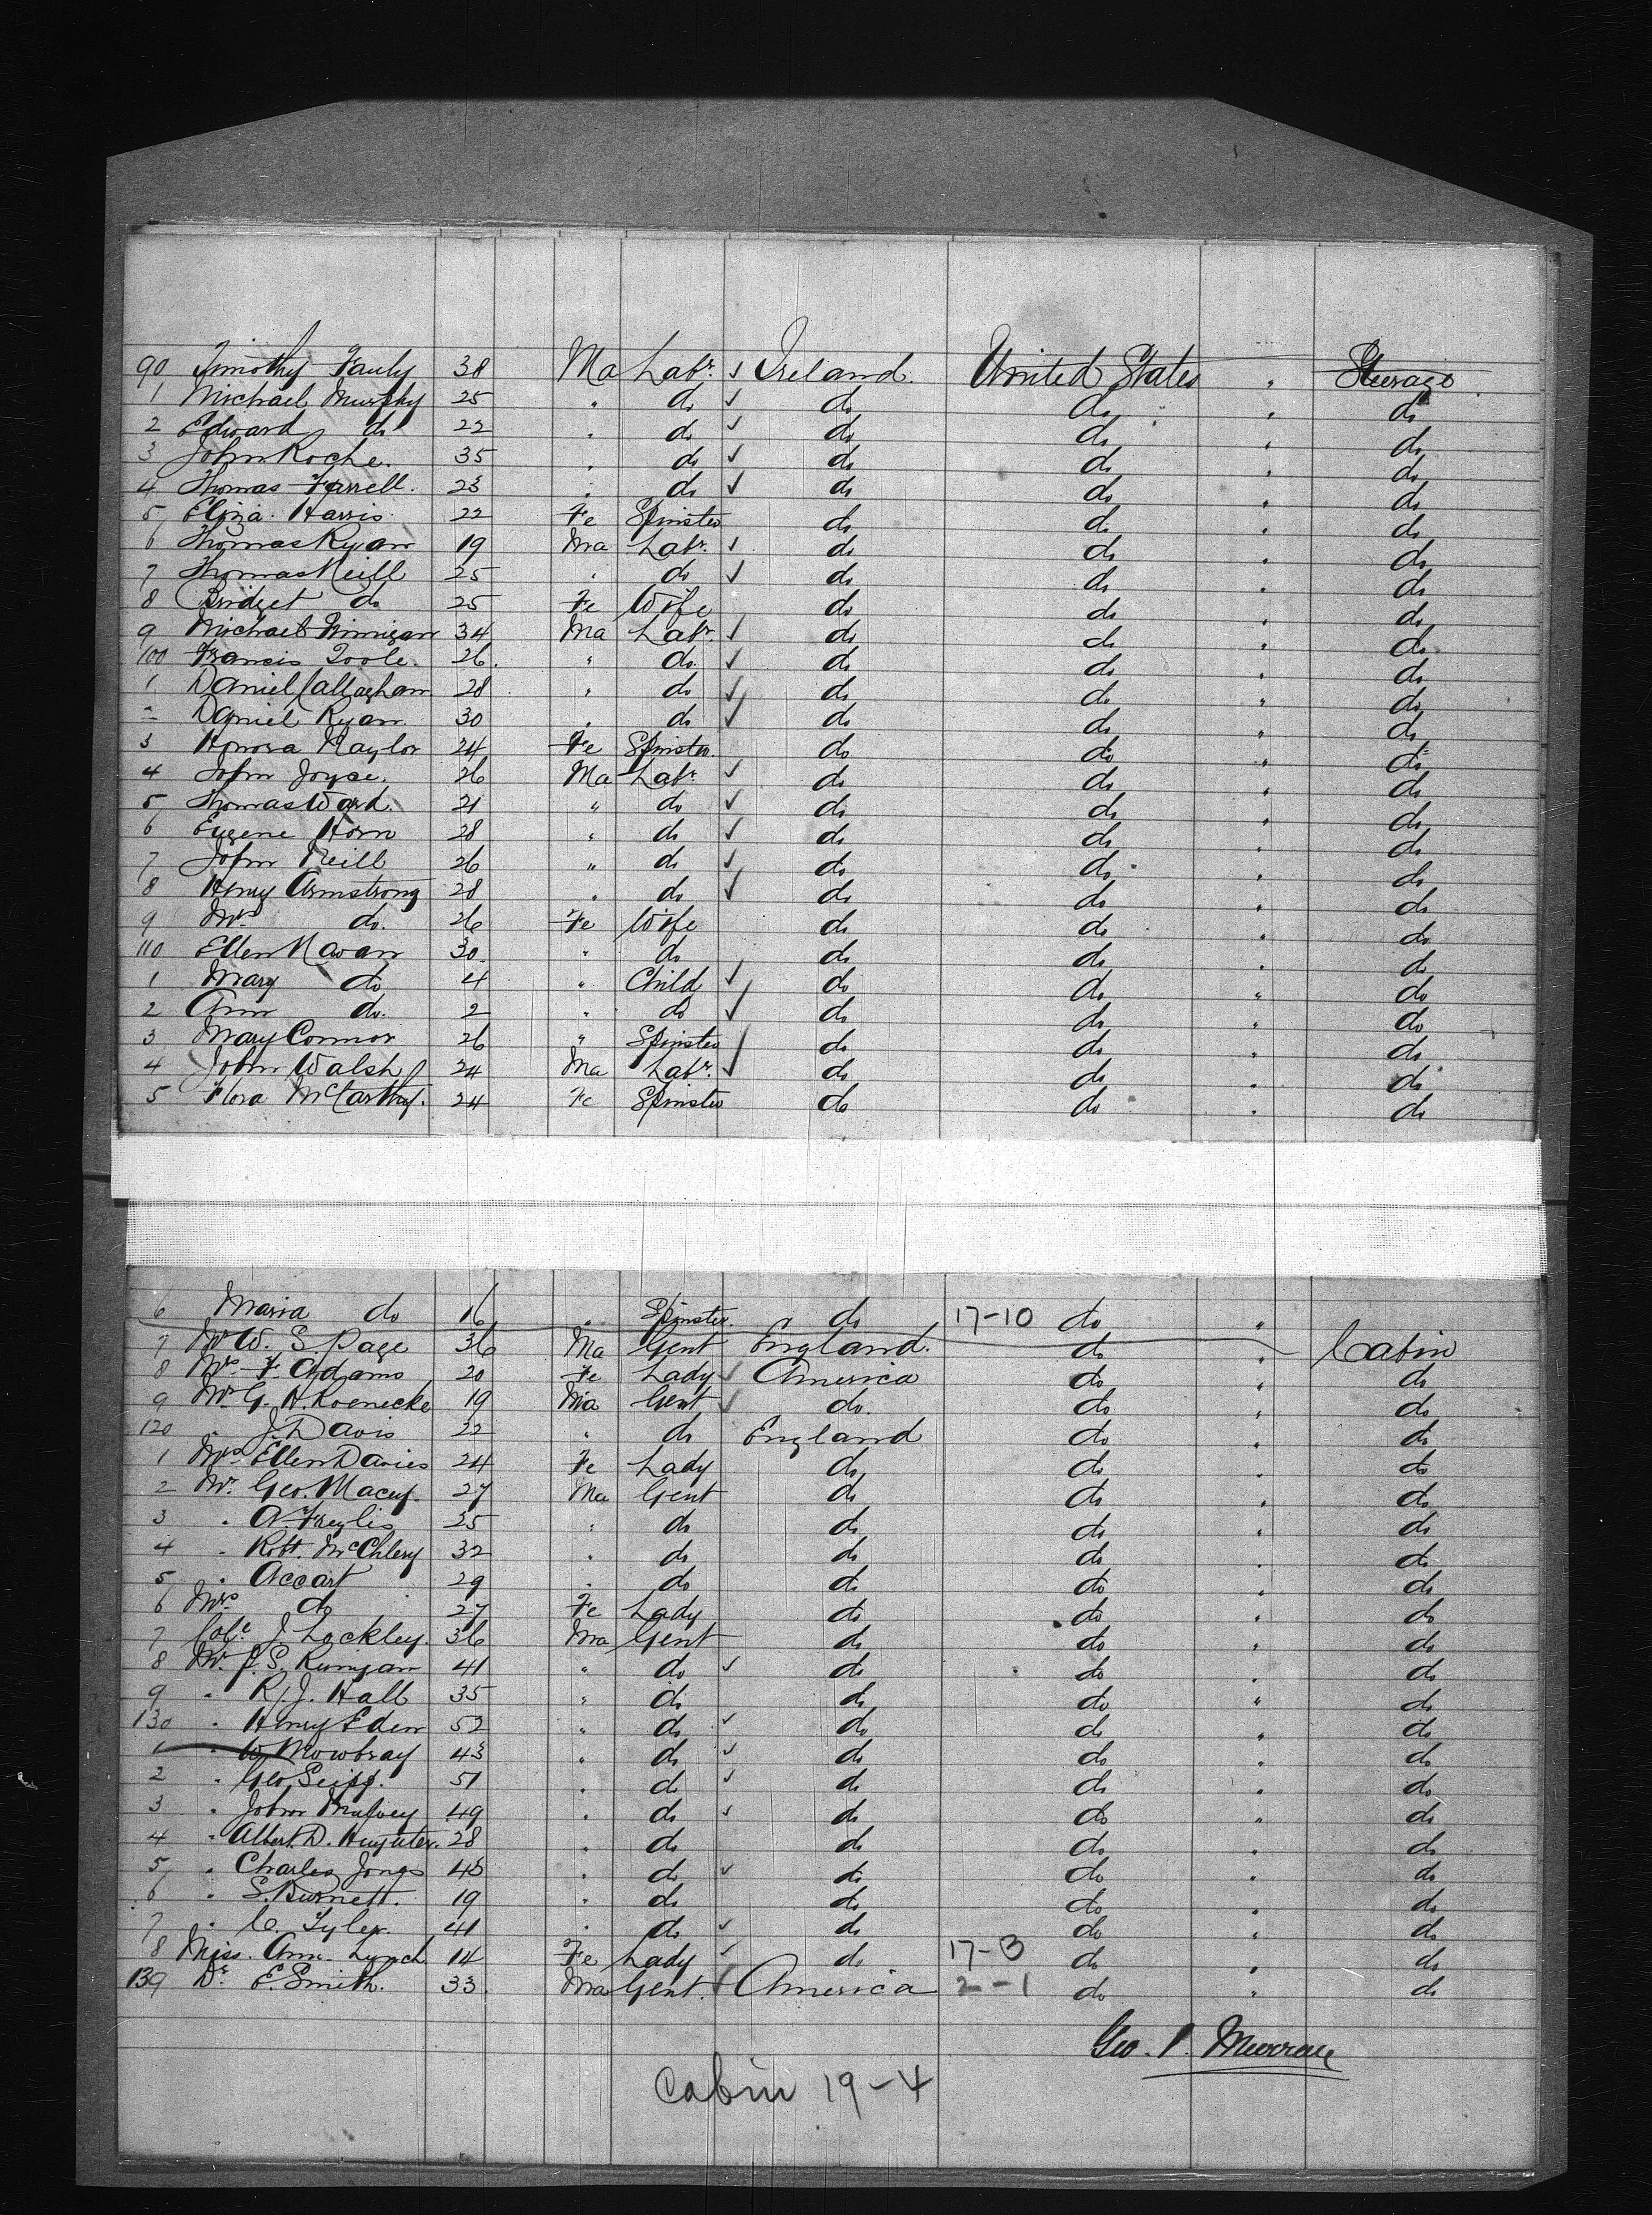 90 Timothy Fauly 38 Ma Labr. ✓ Ireland. United States " Steerage
1 Michael Murphy 25 " do ✓ do do " do
2 Edward do 22 " do ✓ do do " do
3 John Roche. 35 " do ✓ do do " do
4 Thomas Farrell. 23 " do ✓ do do " do
5 Eliza Harris. 22 Fe Spinster do do " do
6 Thomas Ryan 19 Ma Labr. ✓ do do " do
7 Thomas Neill 25 " do ✓ do do " do
8 Bridget do 25 Fe Wife do do " do
9 Michael Finnigan 34 Ma Labr. ✓ do do " do
100 Francis Toole. 26. " do. ✓ do do " do
1 Daniel Callaghan 28 " do ✓ do do " do
2 Daniel Ryan. 30 " do ✓ do do " do
3 Honora Naylor 24 Fe Spinster. do do " do
4 John Joyce. 26 Ma Labr. ✓ do do " do
5 Thomas Ward. 21 " do ✓ do do " do
6 Eugene Horn 28 " do ✓ do do " do
7 John Neill 26 " do ✓ do do " do
8 Henry Armstrong 28 " do ✓ do do " do
9 Mrs do. 26 Fe Wife do do " do
110 Ellen Navan 30. " do do do " do
1 Mary do 4 " Child ✓ do do " do
2 Ann do. 2 " do ✓ do do " do
3 Mary Connor 26 " Spinster ✓ do do " do
4 John Walsh 24 Ma Labr. ✓ do do " do
5 Flora McCarthy. 24 Fe Spinster do do " do
6 Maria do 16 " Spinster. do 17-10 do "
7 Mr W. S. Page 36 Ma Gent England. do " Cabin
8 Mrs F. Adams 20 Fe Lady ✓ America do " do
9 Mr G. H. Koenecke 19 Ma Gent ✓ do. do " do
120 " J. Davis 22 " do England do " do
1 Mrs Ellen Davies 24 Fe Lady do do " do
2 Mr. Geo. Macey. 27 Ma Gent do do " do
3 " A 25 " do do do " do
4 " Robt. McChlery 32 " do do do " do
5 " Accart 29 " do do do " do
6 Mrs do 27 Fe Lady do do " do
7 J. Lockley. 36 Ma Gent do do " do
8 Mr. J. S. 41 " do ✓ do do " do
9 " R. J. Hall 35 " do do do " do
130 " Henry Eden 52 " do ✓ do do " do
1 " W. Mowbray 43 " do ✓ do do " do
2 " Geo. 51 " do ✓ do do " do
3 " John Mulvey 49 " do ✓ do do " do
4 " Albert. D. 28 " do do do " do
5 " Charles Jones 45 " do ✓ do do " do
6 " S. Burnett. 19 " do do do " do
7 " C. Tyler. 41 " do ✓ do do " do
8 Miss. Ann. Lynch 14 Fe Lady ✓ do 17-3 do " do
139 Dr E. Smith. 33. Ma Gent. ✓ America 2-1 do " do
Geo. P. Murray
Cabin 19-4